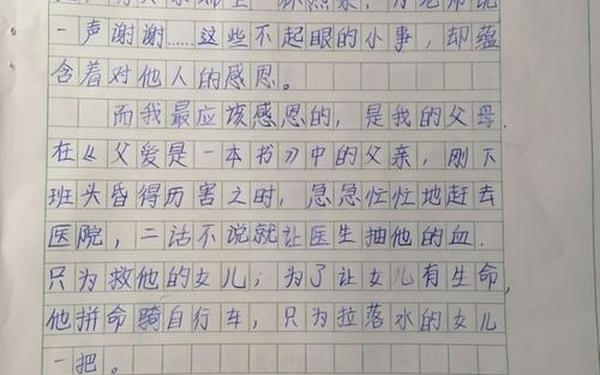 一声谢谢……这些不起眼的小事，却蕴
含着对他人的感恩。
而我最应该感恩的，是我的父母.
在《父爱是一本书》中的父亲，刚下
班头昏得厉害之时，急急忙忙地赶去
医院，二话不说就让医生抽他的血.
只为救他的女儿；为了让女儿有生命，
他拼命骑自行车，只为拉落水的女儿
一把。